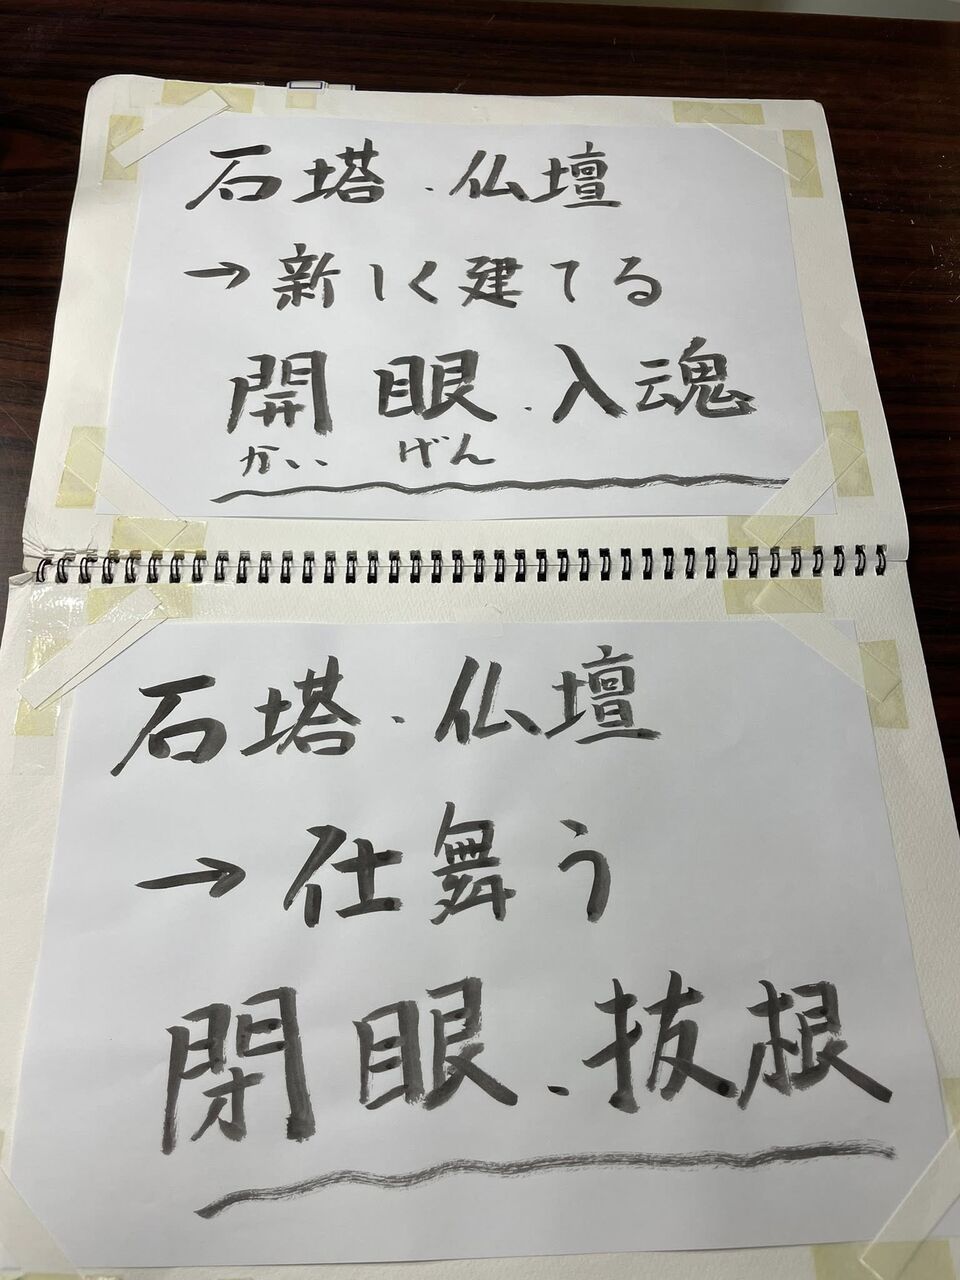 石塔・仏壇
→新しく建てる
開眼・入魂
かい げん
石塔・仏壇
→仕舞う
閉眼・抜根